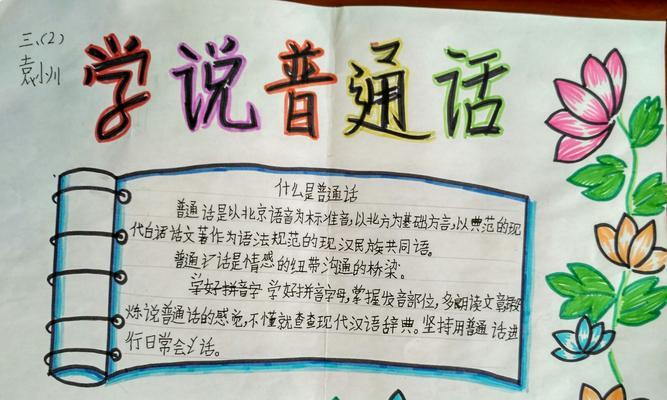 三、(2)
袁小川
学说普通话
什么是普通话
普通话是以北京语音为标准音,以北方为基础方言,以典范的现
代白话话文著作为语法规范的现汉民族共同语。
普通话是情感的纽带沟通的桥梁。
学好拼音字 学好拼音字母,掌握发音部位,多朗读文章
炼说普通话的感觉,不懂就查查现代汉语辞典。坚持用普通话进
行日常会话。